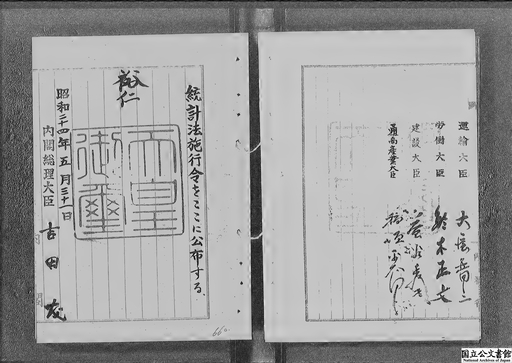 統計法施行令をここに公布する。
裕仁
天皇御璽
昭和二十四年五月三十一日
内閣総理大臣 吉田茂
運輸大臣 大屋晋三
労働大臣 鈴木正文
建設大臣 益谷秀次
国立公文書館
National Archives of Japan